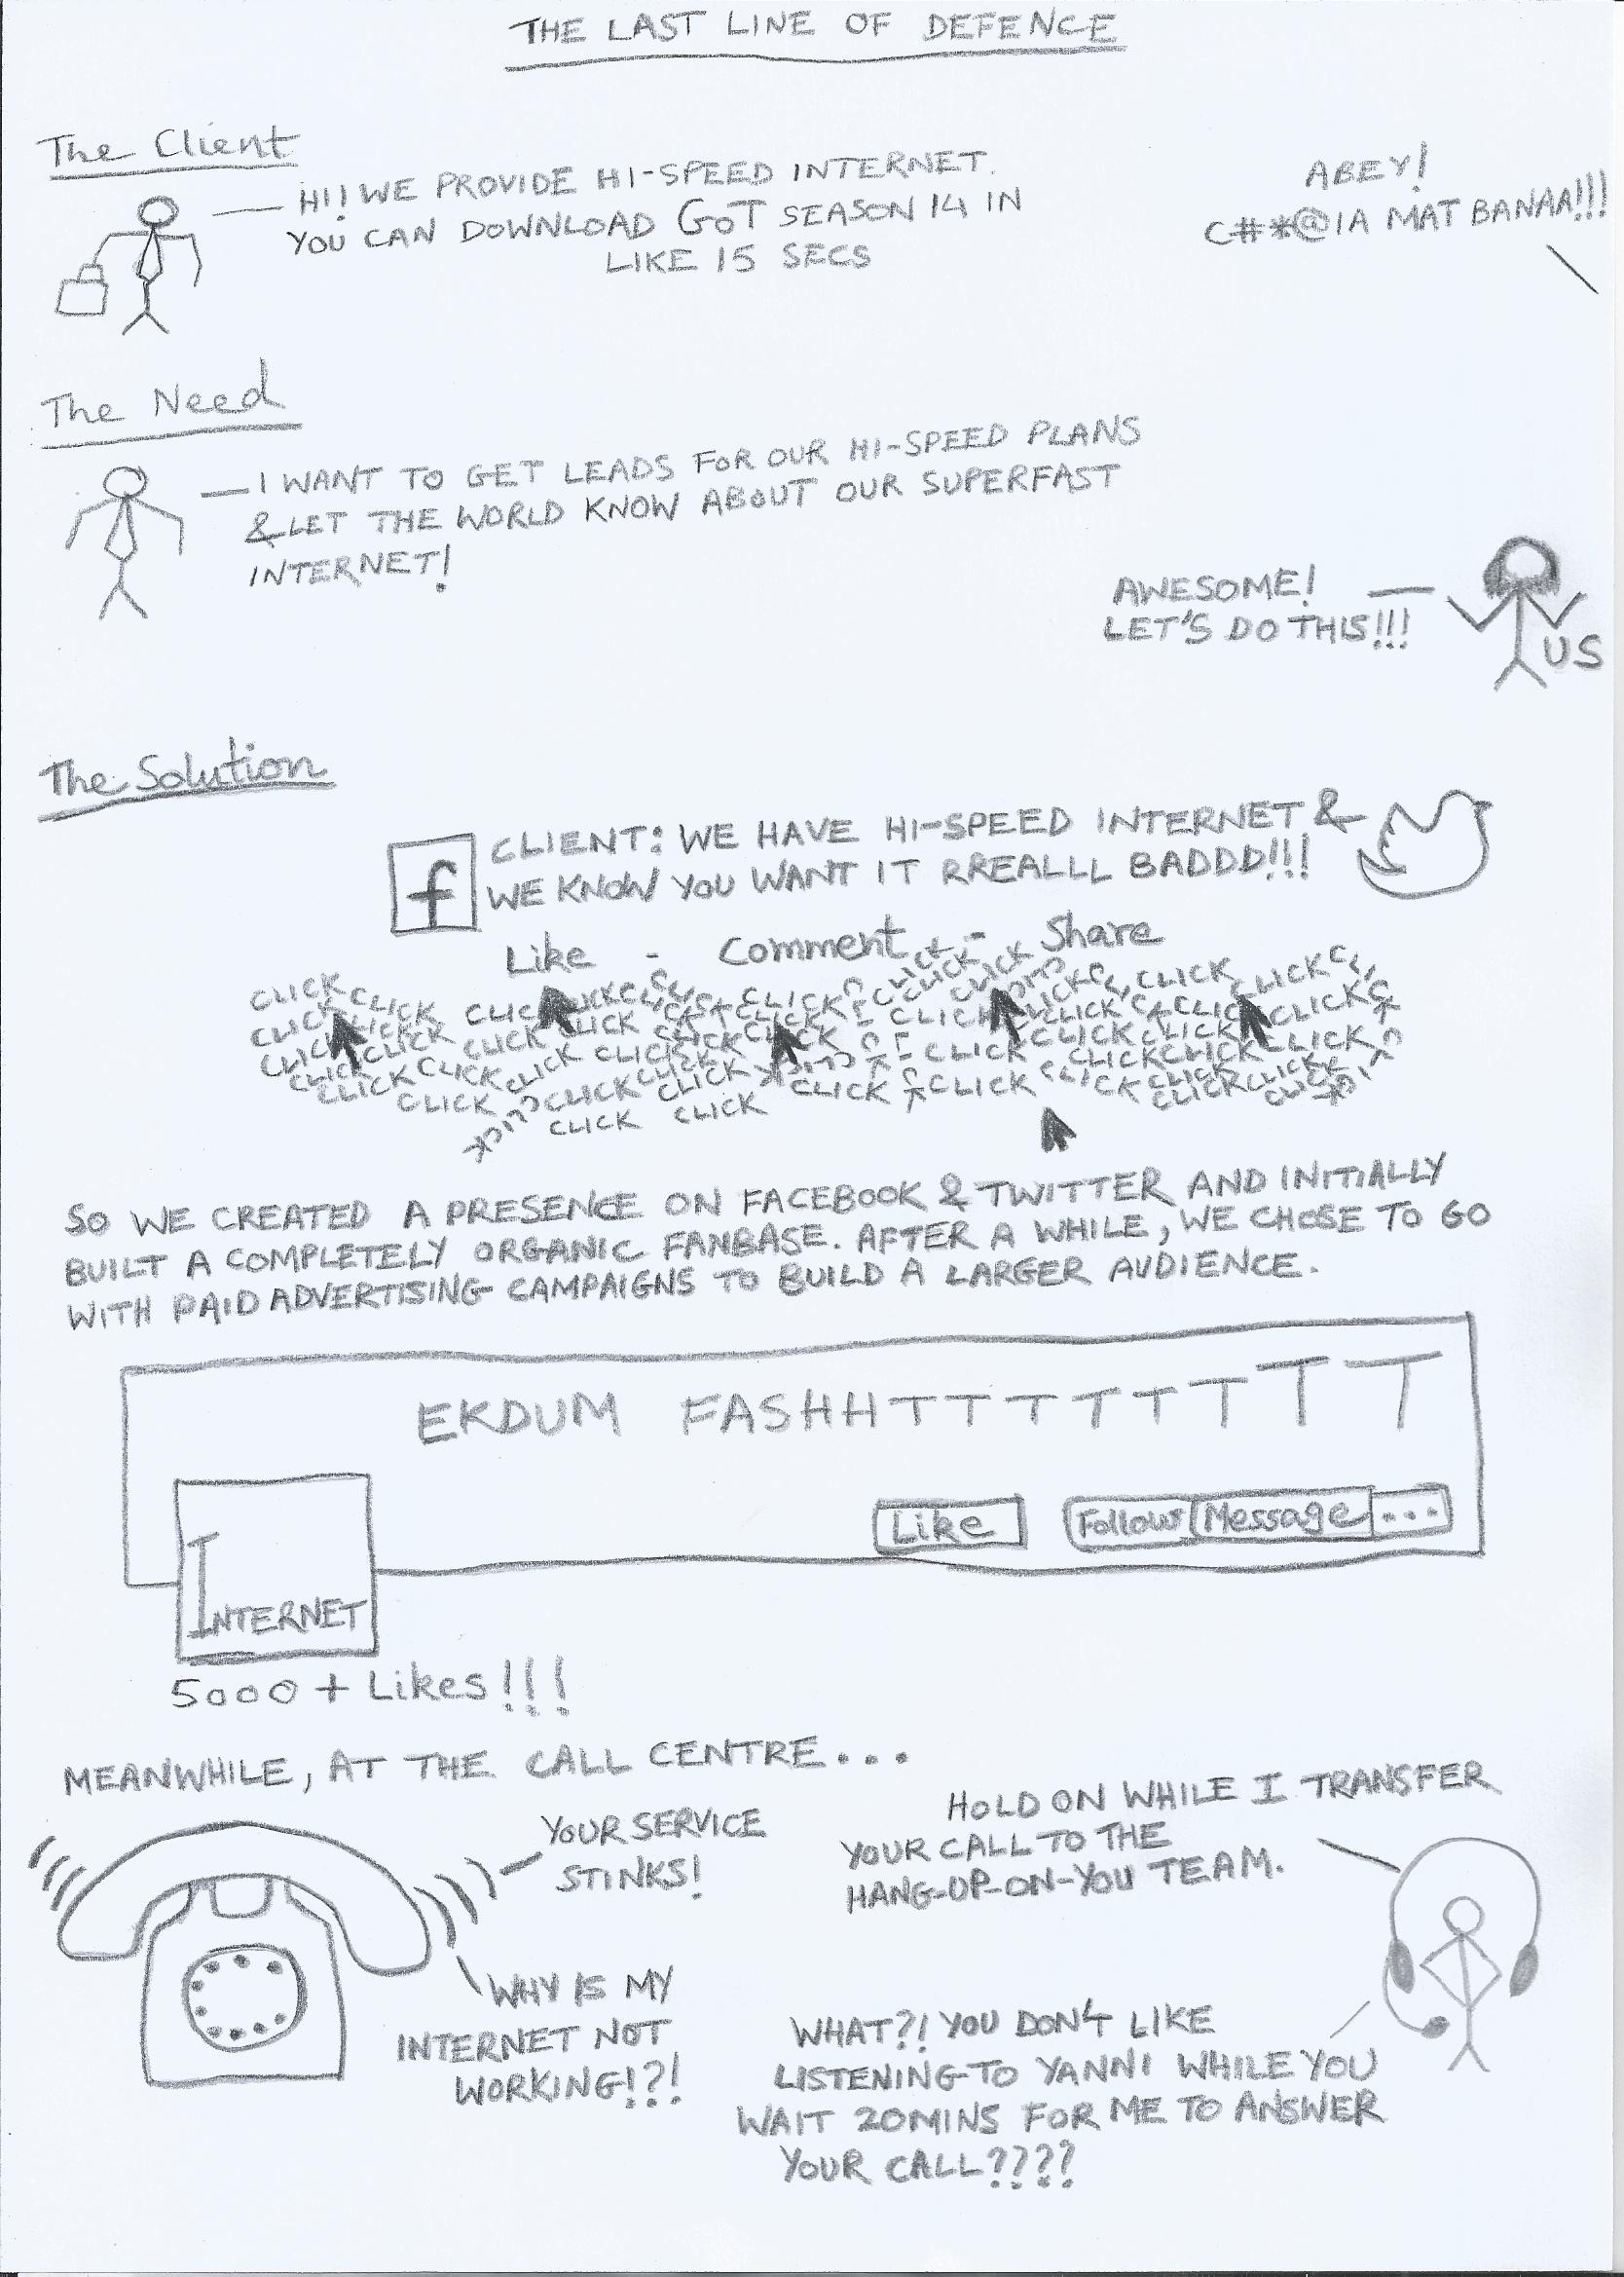 THE LAST LINE OF DEFENCE
The Client
HI! WE PROVIDE HI-SPEED INTERNET.
YOU CAN DOWNLOAD GOT SEASON 14 IN
LIKE 15 SECS
ABEY!
C#*@IA MAT BANAA!!!
The Need
I WANT TO GET LEADS FOR OUR HI-SPEED PLANS
& LET THE WORLD KNOW ABOUT OUR SUPERFAST
INTERNET!
AWESOME!
LET'S DO THIS!!!
US
The Solution
f
CLIENT: WE HAVE HI-SPEED INTERNET &
WE KNOW YOU WANT IT RREALLL BADDD!!!
Like - Comment - Share
CLICK CLICK CLICK CLICK CLICK CLICK CLICK
CLICK CLICK CLICK CLICK CLICK CLICK CLICK
CLICK CLICK CLICK CLICK CLICK CLICK CLICK
CLICK CLICK CLICK CLICK CLICK CLICK CLICK
CLICK CLICK CLICK
SO WE CREATED A PRESENCE ON FACEBOOK & TWITTER AND INITIALLY
BUILT A COMPLETELY ORGANIC FANBASE. AFTER A WHILE, WE CHOSE TO GO
WITH PAID ADVERTISING CAMPAIGNS TO BUILD A LARGER AUDIENCE.
EKDUM FASHHTTTTTTTT
Like Follow Message ...
INTERNET
5000 + Likes!!!
MEANWHILE, AT THE CALL CENTRE...
YOUR SERVICE
STINKS!
HOLD ON WHILE I TRANSFER
YOUR CALL TO THE
HANG-UP-ON-YOU TEAM.
WHY IS MY
INTERNET NOT
WORKING!?!
WHAT?! YOU DON'T LIKE
LISTENING TO YANNI WHILE YOU
WAIT 20MINS FOR ME TO ANSWER
YOUR CALL????